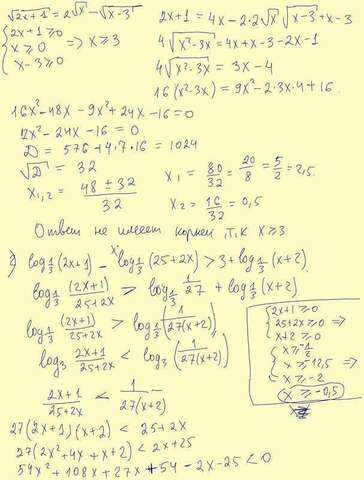 √(2x+1) = 2√x - √(x-3)
{ 2x+1 ≥ 0
x ≥ 0 => x ≥ 3
x-3 ≥ 0
2x+1 = 4x - 2·2√x √(x-3) + x-3
4√(x²-3x) = 4x+x-3-2x-1
4√(x²-3x) = 3x-4
16(x²-3x) = 9x²-2·3x·4+16.
16x²-48x-9x²+24x-16=0
7x²-24x-16=0
D = 576+4·7·16 = 1024
√D = 32
x₁,₂ = (48±32)/32
x₁ = 80/32 = 20/8 = 5/2 = 2,5.
x₂ = 16/32 = 0,5
Ответ не имеет корней, т.к x ≥ 3
log₁/₃(2x+1) - log₁/₃(25+2x) > 3 + log₁/₃(x+2)
log₁/₃ (2x+1)/(25+2x) > log₁/₃ 1/27 + log₁/₃(x+2)
log₁/₃ (2x+1)/(25+2x) > log₁/₃ (1/(27(x+2)))
log₃ (2x+1)/(25+2x) < log₃ (1/(27(x+2)))
(2x+1)/(25+2x) < 1/(27(x+2))
27(2x+1)(x+2) < 25+2x
27(2x²+4x+x+2) < 2x+25
54x²+108x+27x+54-2x-25<0
{ 2x+1 ≥ 0
25+2x ≥ 0 =>
x+2 ≥ 0
{ x ≥ -1/2
x ≥ -12,5 =>
x ≥ -2
x ≥ -0,5